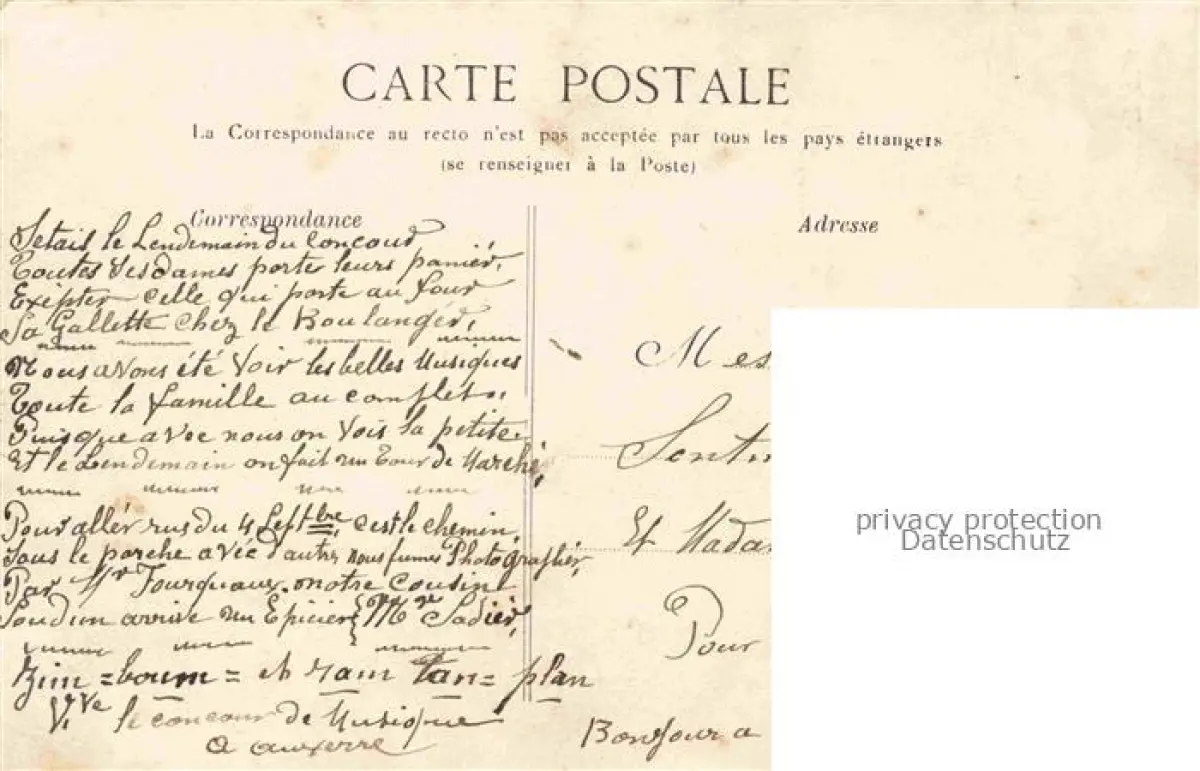 CARTE POSTALE
La Correspondance au recto n'est pas acceptée par tous les pays étrangers
(se renseigner à la Poste)
Correspondance
Setais le Lendemain du Concour
Toutes Ses dames porte leurs panier,
Exipter celle qui porte au four
Sa Gallette chez le Boulanger,
Nous avons été Voir les belles Musiques
Toute la famille au complet,
Puisque avec nous on Vois la petite
Et le Lendemain on fait un Tour de Marché,
Pour aller rus du 4 Septbre, c'est le chemin,
Sous le porche avec d'autres nous fumes Photographier,
Par Mr Fourquaux notre Cousin
Soudun arrive un Epicier Mme Sadier,
Zim = boum = et ram tan = plan
Vve le concour de Musique
a auxerre
Adresse
Mes
Sentin
Et Mada
Pour
Bonjour a
privacy protection
Datenschutz